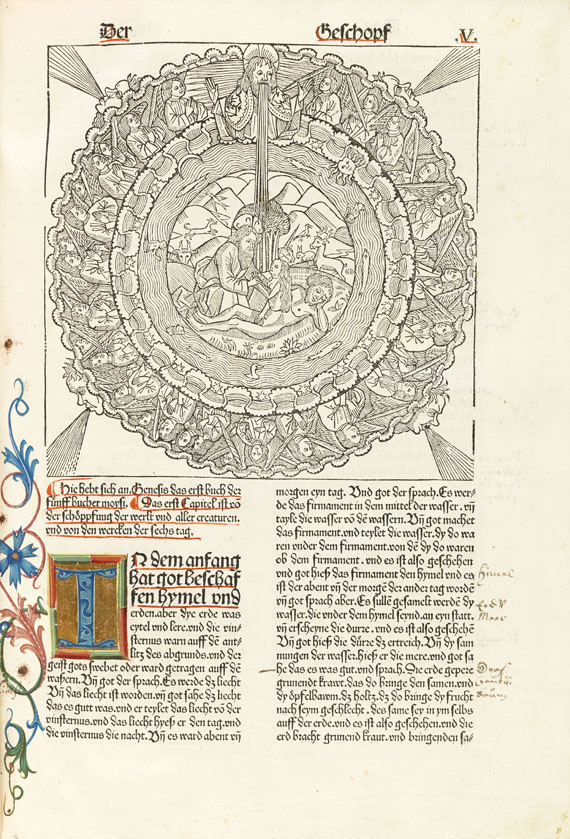 Der Geschopf .V.
Hie hebt sich an. Genesis das erst buch der
fünff bucher moysi. Das erst Capitel ist võ
der schöpffung der werlt vnd aller creaturen.
vnd von den wercken der sechs tag.
IN dem anfang
hat got beschaf
fen hymel vnd
erden. aber dye erde was
eytel vnd lere. vnd die vin⸗
sternus warn auff dē ant⸗
litz des abgrunds. vnd der
geist gots swebet oder ward getragen auff dē
wassern. Vñ got der sprach. Es werde dz liecht
Vñ das liecht ist worden. vñ got sahe dz liecht
das es gutt was. vnd er teylet das liecht võ der
vinsternus. vnd das liecht hyeß er den tag. vnd
die vinsternus die nacht. Vñ es ward abent vñ
morgen eyn tag. Vnd got der sprach. Es wer⸗
de das firmament in dem mittel der wasser. vñ
tayle die wasser võ dē wassern. Vñ got machet
das firmament. vnd teylet die wasser. dy do wa
ren vnder dem firmament. von dē dy do waren
ob dem firmament. vnd es ist also geschehen
vnd got hieß das firmament den hymel vnd es
ist der abent vñ der morgē der ander tag wordē
vñ got sprach aber. Es sullē gesamelt werdē dy
wasser. die vnder dem hymel seynd. an eyn statt.
vñ erscheyne die durre. vnd es ist also geschehē
Vñ got hieß die dürre dz ertreich. Vñ dy sam
nungen der wasser. hieß er die mere. vnd got sa
he das es was gut. vnd sprach. Die erde gepere
grunendt kraut. das do bringe den samen. vnd
dy öpfelbawm. dz holtz. dz do bringe dy frucht
nach seym geschlecht. des same sey in ym selbs
auff der erde. vnd es ist also geschehen. vnd die
erd bracht grunend kraut. vnd bringenden sa⸗